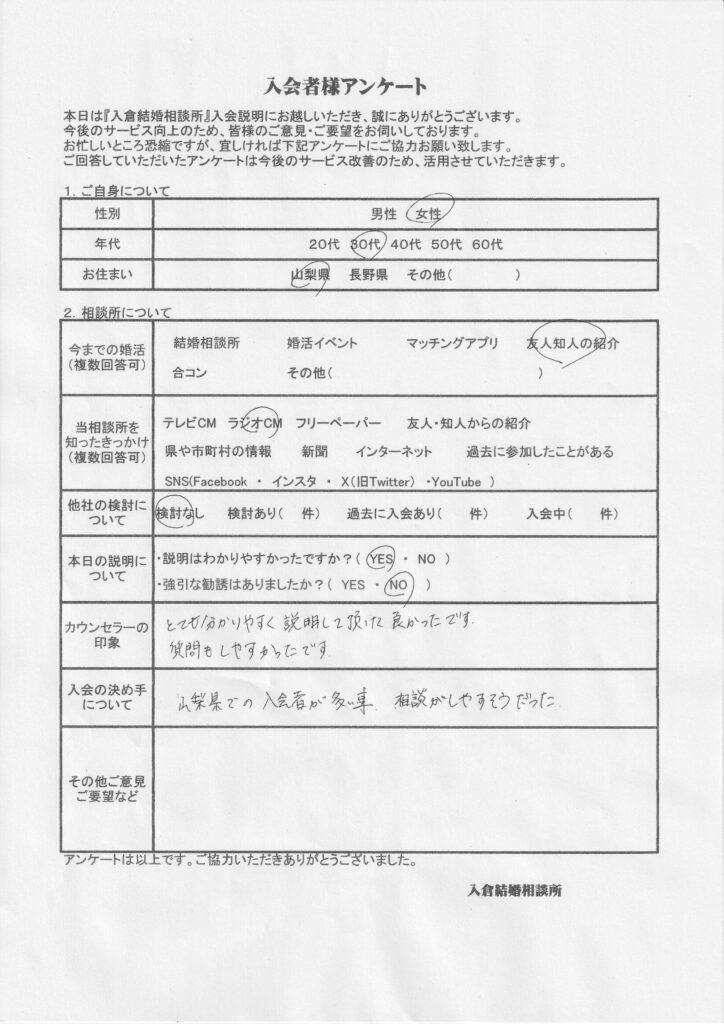 入会者様アンケート
本日は『入倉結婚相談所』入会説明にお越しいただき、誠にありがとうございます。
今後のサービス向上のため、皆様のご意見・ご要望をお伺いしております。
お忙しいところ恐縮ですが、宜しければ下記アンケートにご協力お願い致します。
ご回答していただいたアンケートは今後のサービス改善のため、活用させていただきます。
1. ご自身について
性別 男性 女性
年代 20代 30代 40代 50代 60代
お住まい 山梨県 長野県 その他( )
2. 相談所について
今までの婚活
(複数回答可)
結婚相談所 婚活イベント マッチングアプリ 友人知人の紹介
合コン その他( )
当相談所を
知ったきっかけ
(複数回答可)
テレビCM ラジオCM フリーペーパー 友人・知人からの紹介
県や市町村の情報 新聞 インターネット 過去に参加したことがある
SNS(Facebook ・ インスタ ・ X(旧Twitter) ・YouTube )
他社の検討に
ついて
検討なし 検討あり( 件) 過去に入会あり( 件) 入会中( 件)
本日の説明に
ついて
・説明はわかりやすかったですか？( YES ・ NO )
・強引な勧誘はありましたか？( YES ・ NO )
カウンセラーの
印象
とても分かりやすく 説明して頂けて 良かったです.
質問も しやすかったです
入会の決め手
について
山梨県での 入会者が多い事. 相談がしやすそうだった.
その他ご意見
ご要望など
アンケートは以上です。ご協力いただきありがとうございました。
入倉結婚相談所